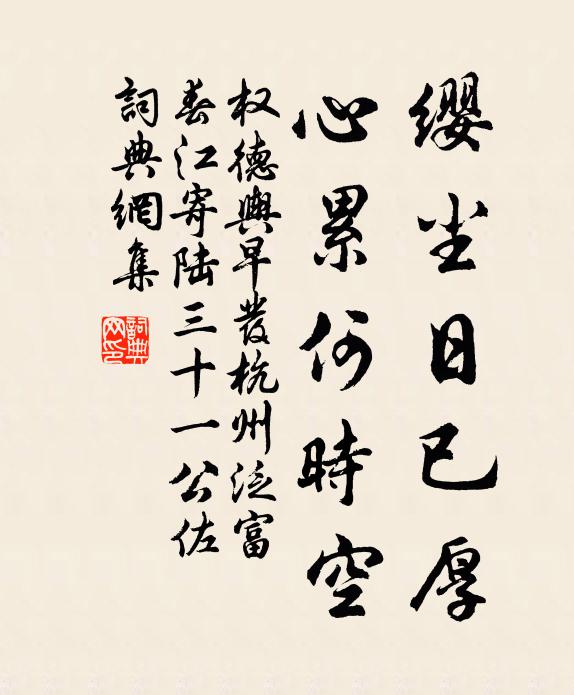 缨尘日已厚
心累何時空
权德舆早發杭州泛富
春江寄陆三十一公佐
詞典網集
詞典
网印